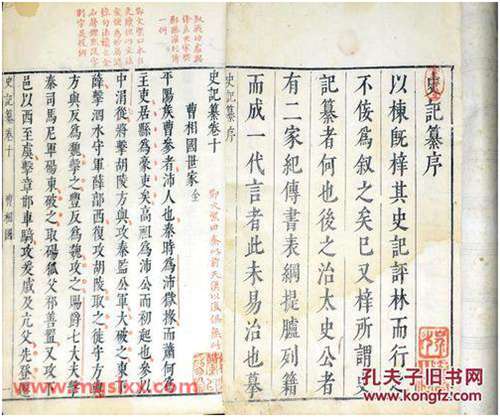 史記纂序
以棟既梓其史記評林而行之
不佞爲叙之矣已又梓所謂史
記纂者何也後之治太史公者
有二家紀傳書表綱提臚列籍
而成一代言者此未易治也摹
史記纂序
史記纂卷十
曹相國世家 全
平陽侯曹參者沛人也秦時爲沛獄掾而蕭何爲
主吏居縣爲豪吏矣高祖爲沛公而初起也參以
中涓從將擊胡陵方與攻秦監公軍大破之東下
薛擊泗水守軍薛郭西復攻胡陵取之徙守方與
方與反爲魏擊之豐反爲魏攻之賜爵七大夫擊
秦司馬尼軍碭東破之取碭狐父祁善置又攻下
邑以西至虞擊章邯車騎攻爰戚及亢父先登
史記纂卷十 曹相國
孔夫子旧书网